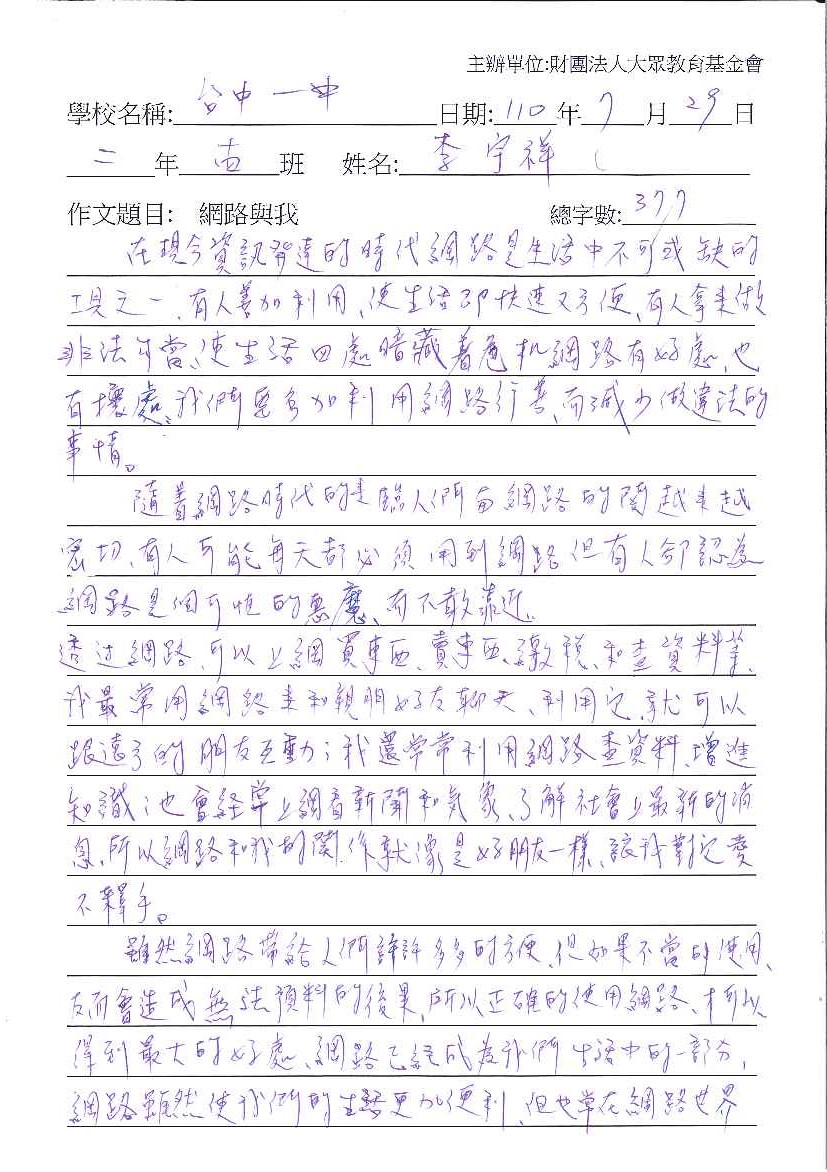 主辦單位:財團法人大眾教育基金會
學校名稱: 台中一中 日期: 110 年 7 月 29 日
二 年 班 姓名: 李宇祥
作文題目: 網路與我 總字數: 377
在現今資訊發達的時代網路是生活中不可或缺的
工具之一、有人善加利用、使生活即快速又方便、有人拿來做
非法勾當、使生活四處暗藏著危机網路有好處、也
有壞處、我們要多加利用網路行善、而減少做違法的
事情。
隨著網路時代的來臨人們與網路的關越來越
密切、有人可能每天都必須用到網路但有人卻認為
網路是個可怕的惡魔、而不敢靠近。
透过網路、可以上網買東西、賣東西、繳稅、和查資料業、
我最常用網路來和親朋好友聊天、利用它、就可以
跟遠方的朋友互動；我還常常利用網路查資料、增進
知識；也會経常上網看新聞和気象、了解社會上最新的消
息、所以網路和我的関係就像是好朋友一樣、讓我對它愛
不釋手。
雖然網路帶給人們許許多多的方便、但如果不當的使用、
反而會造成無法預料的後果、所以正確的使用網路、才可以
得到最大的好處、網路已経成為我們生活中的一部分，
網路雖然使我們的生活更加便利、但也常在網路世界